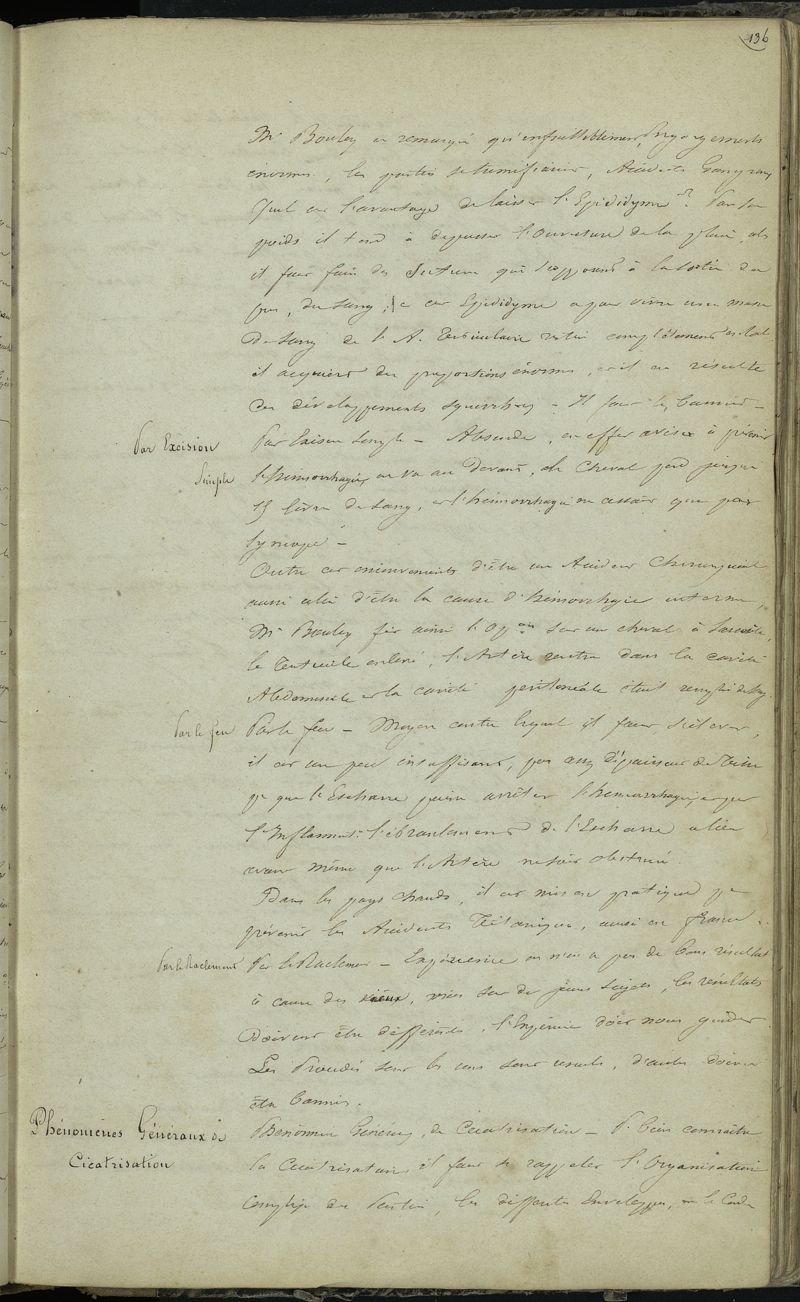 136
Mr Bouley a remarqué qu'infailliblement, Engorgements
énormes, les parties se tumifiaient, Accidents Gangreneux
Quel est l'avantage de laisser l'Epididyme? Par son
poids il tend à dépasser l'Ouverture de la plaie, alors
il faut faire des Sutures qui s'opposent à la Sortie du
pus, du Sang, cet Epididyme a pour vivre une masse
de Sang de l'A. Testiculaire reste complètement
il acquiert des proportions énormes, et il en résulte
des développements Squirrheux - Il faut les bannir -
Par Excision
Simple
Par Exision Simple - Absurde, en effet à prévenir
l'hémorrhagie on va au Devant, le Cheval perd jusque
15 livres de Sang, et l'hémorrhagie ne cesse que par
Syncope -
Outre cet inconvenients d'être un Accident Chirurgical
aussi celui d'être la cause d'hémorrhagie interne,
Mr Bouley fit ainsi l'Opon sur un cheval à
le Testicule enlevé, l'Artère rentra dans la cavité
Abdominale et la cavité péritonéale était remplie de Sang
Par le feu
Par le feu - Moyen contre lequel il faut s'élever,
il est un peu insuffisant, pas assez d'épaisseur de Tissu
pr que l'Escharre puisse arrêter l'hémorrhagie, et par
l'Inflammt. l'ébranlement de l'Escharre a lieu
avant même que l'Artère ne soit obstruée.
Dans les pays chauds, il est mis en pratique pr
prévenir les Accidents Tétaniques, aussi en france.
Par le Raclement
Par le Raclement - Expérience on n'en a pas de bons résultats
à cause des vieux, mais sur de jeunes Sujets, les résultats
doivent être différents, l'Expérience doit nous guider.
Les Procédés sont les uns sont usuels, d'autres doivent
être bannis.
Phénomènes Généraux de
Cicatrisation
Phénomènes Generaux de Cicatrisation - Pr bien connaître
la Cicatrisation il faut se rappeler l'Organisation
Complexe des Parties, les differentes Enveloppes, le Cordon